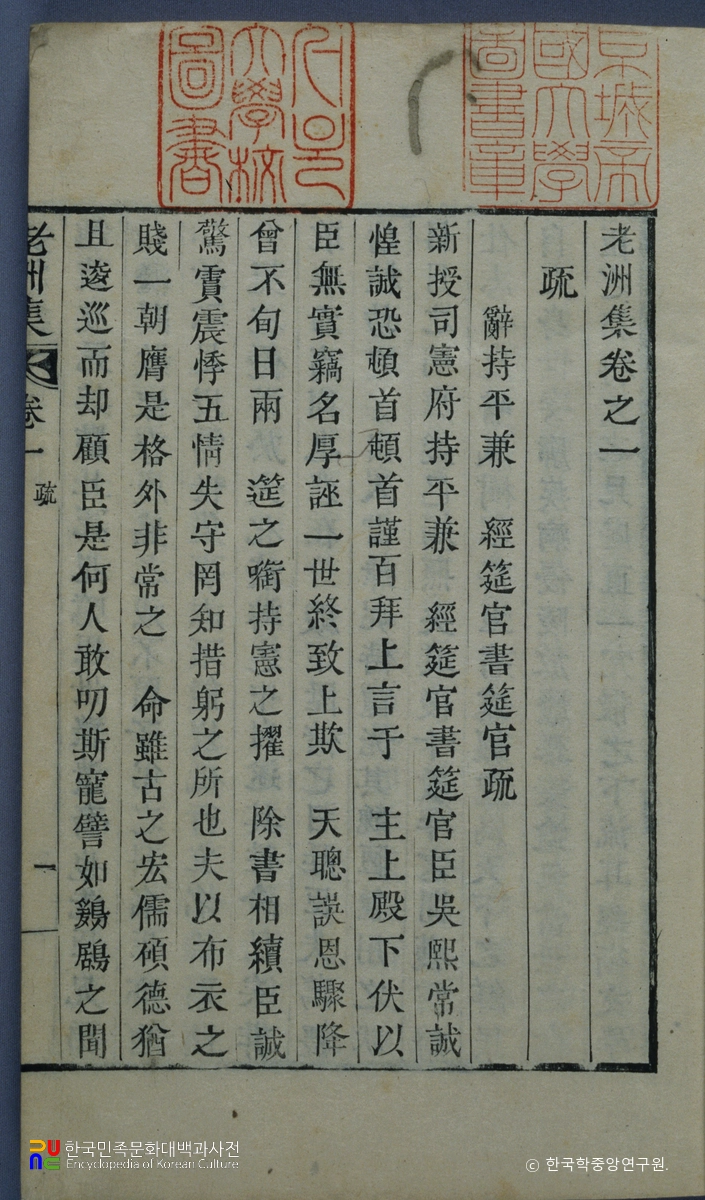 京城帝國大學圖書章
서울大學校圖書
老洲集卷之一
疏
辭持平兼 經筵官書筵官疏
新授司憲府持平兼 經筵官書筵官臣吳熙常誠
惶誠恐頓首頓首謹百拜上言于 主上殿下伏以
臣無實竊名厚誣一世終致上欺 天聰誤恩驟降
曾不旬日兩 筵之銜持憲之擢 除書相續臣誠
驚霣震悸五情失守罔知措躬之所也夫以布衣之
賤一朝膺是格外非常之 命雖古之宏儒碩德猶
且逡巡而却顧臣是何人敢叨斯寵譬如鷄鶋之聞
老洲集 卷一 疏 一
한국민족문화대백과사전
Encyclopedia of Korean Culture
© 한국학중앙연구원.